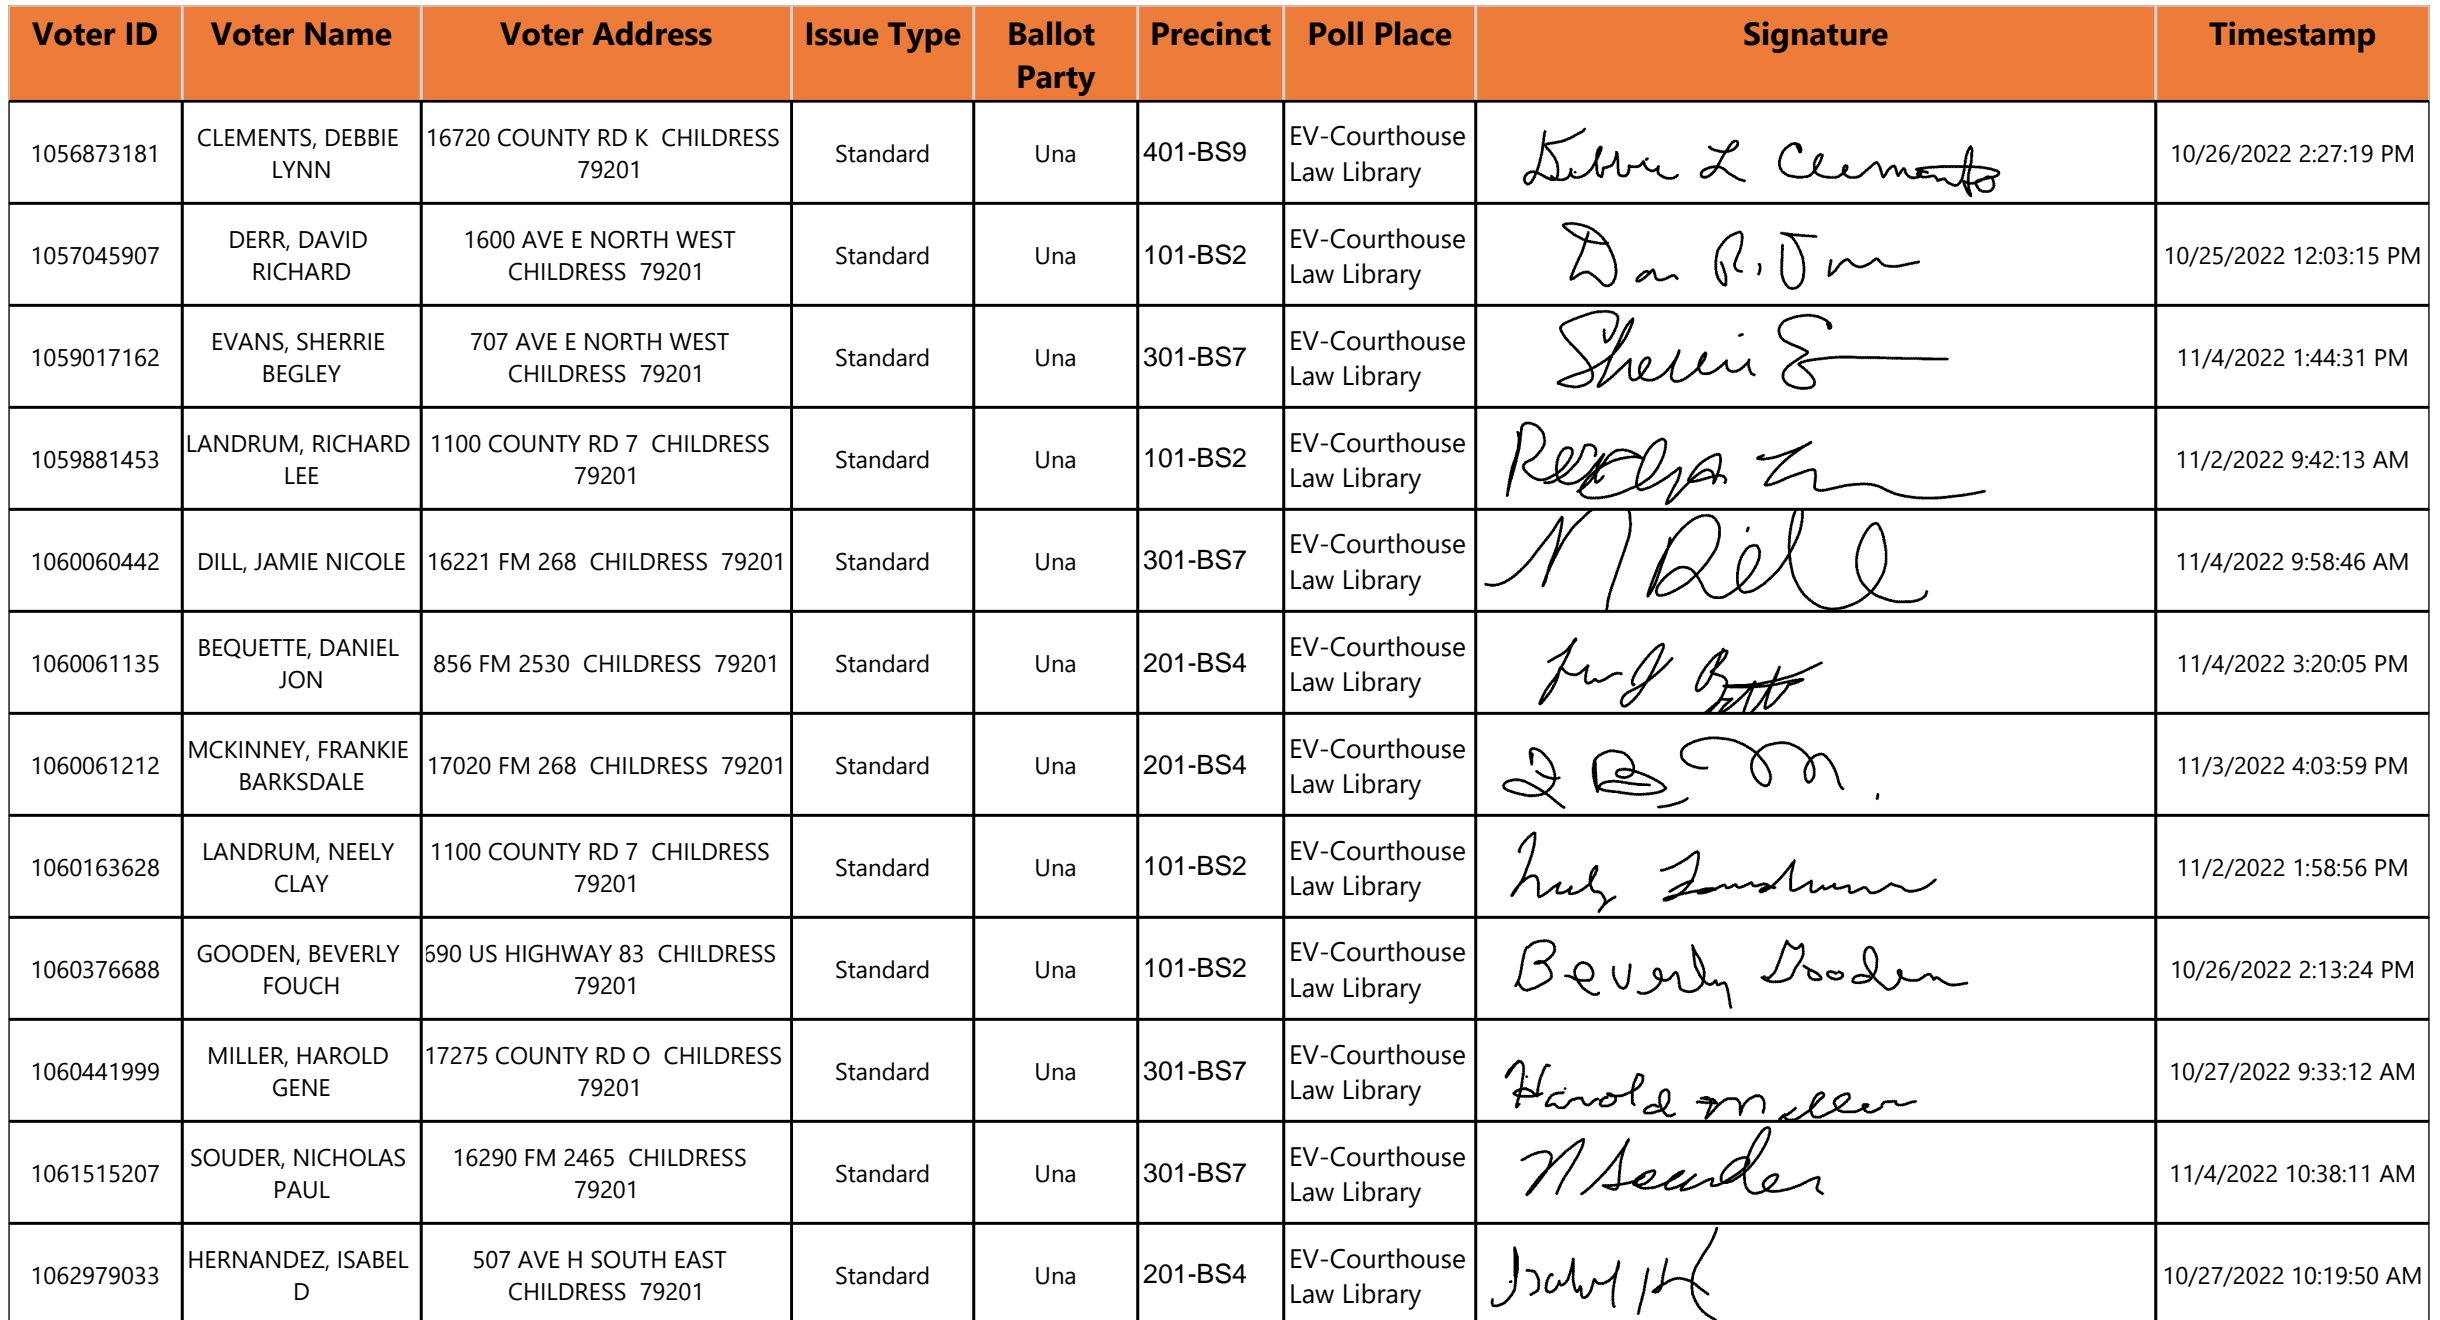 Voter ID Voter Name Voter Address Issue Type Ballot Party Precinct Poll Place Signature Timestamp
1056873181 CLEMENTS, DEBBIE LYNN 16720 COUNTY RD K CHILDRESS 79201 Standard Una 401-BS9 EV-Courthouse Law Library Debbie L Clements 10/26/2022 2:27:19 PM
1057045907 DERR, DAVID RICHARD 1600 AVE E NORTH WEST CHILDRESS 79201 Standard Una 101-BS2 EV-Courthouse Law Library 10/25/2022 12:03:15 PM
1059017162 EVANS, SHERRIE BEGLEY 707 AVE E NORTH WEST CHILDRESS 79201 Standard Una 301-BS7 EV-Courthouse Law Library Sherrie E 11/4/2022 1:44:31 PM
1059881453 LANDRUM, RICHARD LEE 1100 COUNTY RD 7 CHILDRESS 79201 Standard Una 101-BS2 EV-Courthouse Law Library 11/2/2022 9:42:13 AM
1060060442 DILL, JAMIE NICOLE 16221 FM 268 CHILDRESS 79201 Standard Una 301-BS7 EV-Courthouse Law Library N Dill 11/4/2022 9:58:46 AM
1060061135 BEQUETTE, DANIEL JON 856 FM 2530 CHILDRESS 79201 Standard Una 201-BS4 EV-Courthouse Law Library 11/4/2022 3:20:05 PM
1060061212 MCKINNEY, FRANKIE BARKSDALE 17020 FM 268 CHILDRESS 79201 Standard Una 201-BS4 EV-Courthouse Law Library 11/3/2022 4:03:59 PM
1060163628 LANDRUM, NEELY CLAY 1100 COUNTY RD 7 CHILDRESS 79201 Standard Una 101-BS2 EV-Courthouse Law Library Neely Landrum 11/2/2022 1:58:56 PM
1060376688 GOODEN, BEVERLY FOUCH 690 US HIGHWAY 83 CHILDRESS 79201 Standard Una 101-BS2 EV-Courthouse Law Library Beverly Gooden 10/26/2022 2:13:24 PM
1060441999 MILLER, HAROLD GENE 17275 COUNTY RD O CHILDRESS 79201 Standard Una 301-BS7 EV-Courthouse Law Library Harold Miller 10/27/2022 9:33:12 AM
1061515207 SOUDER, NICHOLAS PAUL 16290 FM 2465 CHILDRESS 79201 Standard Una 301-BS7 EV-Courthouse Law Library N Souder 11/4/2022 10:38:11 AM
1062979033 HERNANDEZ, ISABEL D 507 AVE H SOUTH EAST CHILDRESS 79201 Standard Una 201-BS4 EV-Courthouse Law Library Isabel H 10/27/2022 10:19:50 AM